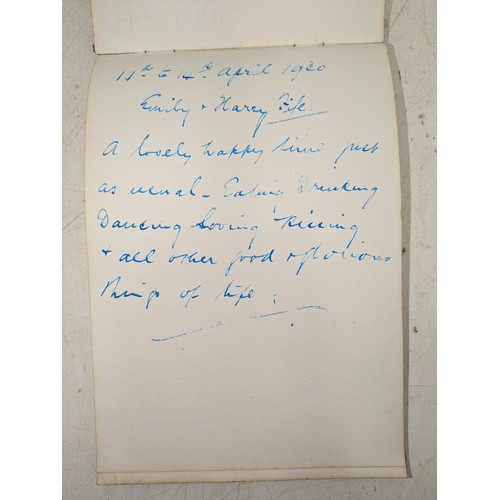 11th to 14th April 1930
Emily + Harry Fife.
A lovely happy time just
as usual - Eating Drinking
Dancing Loving Kissing
+ all other good + glorious
things of life :